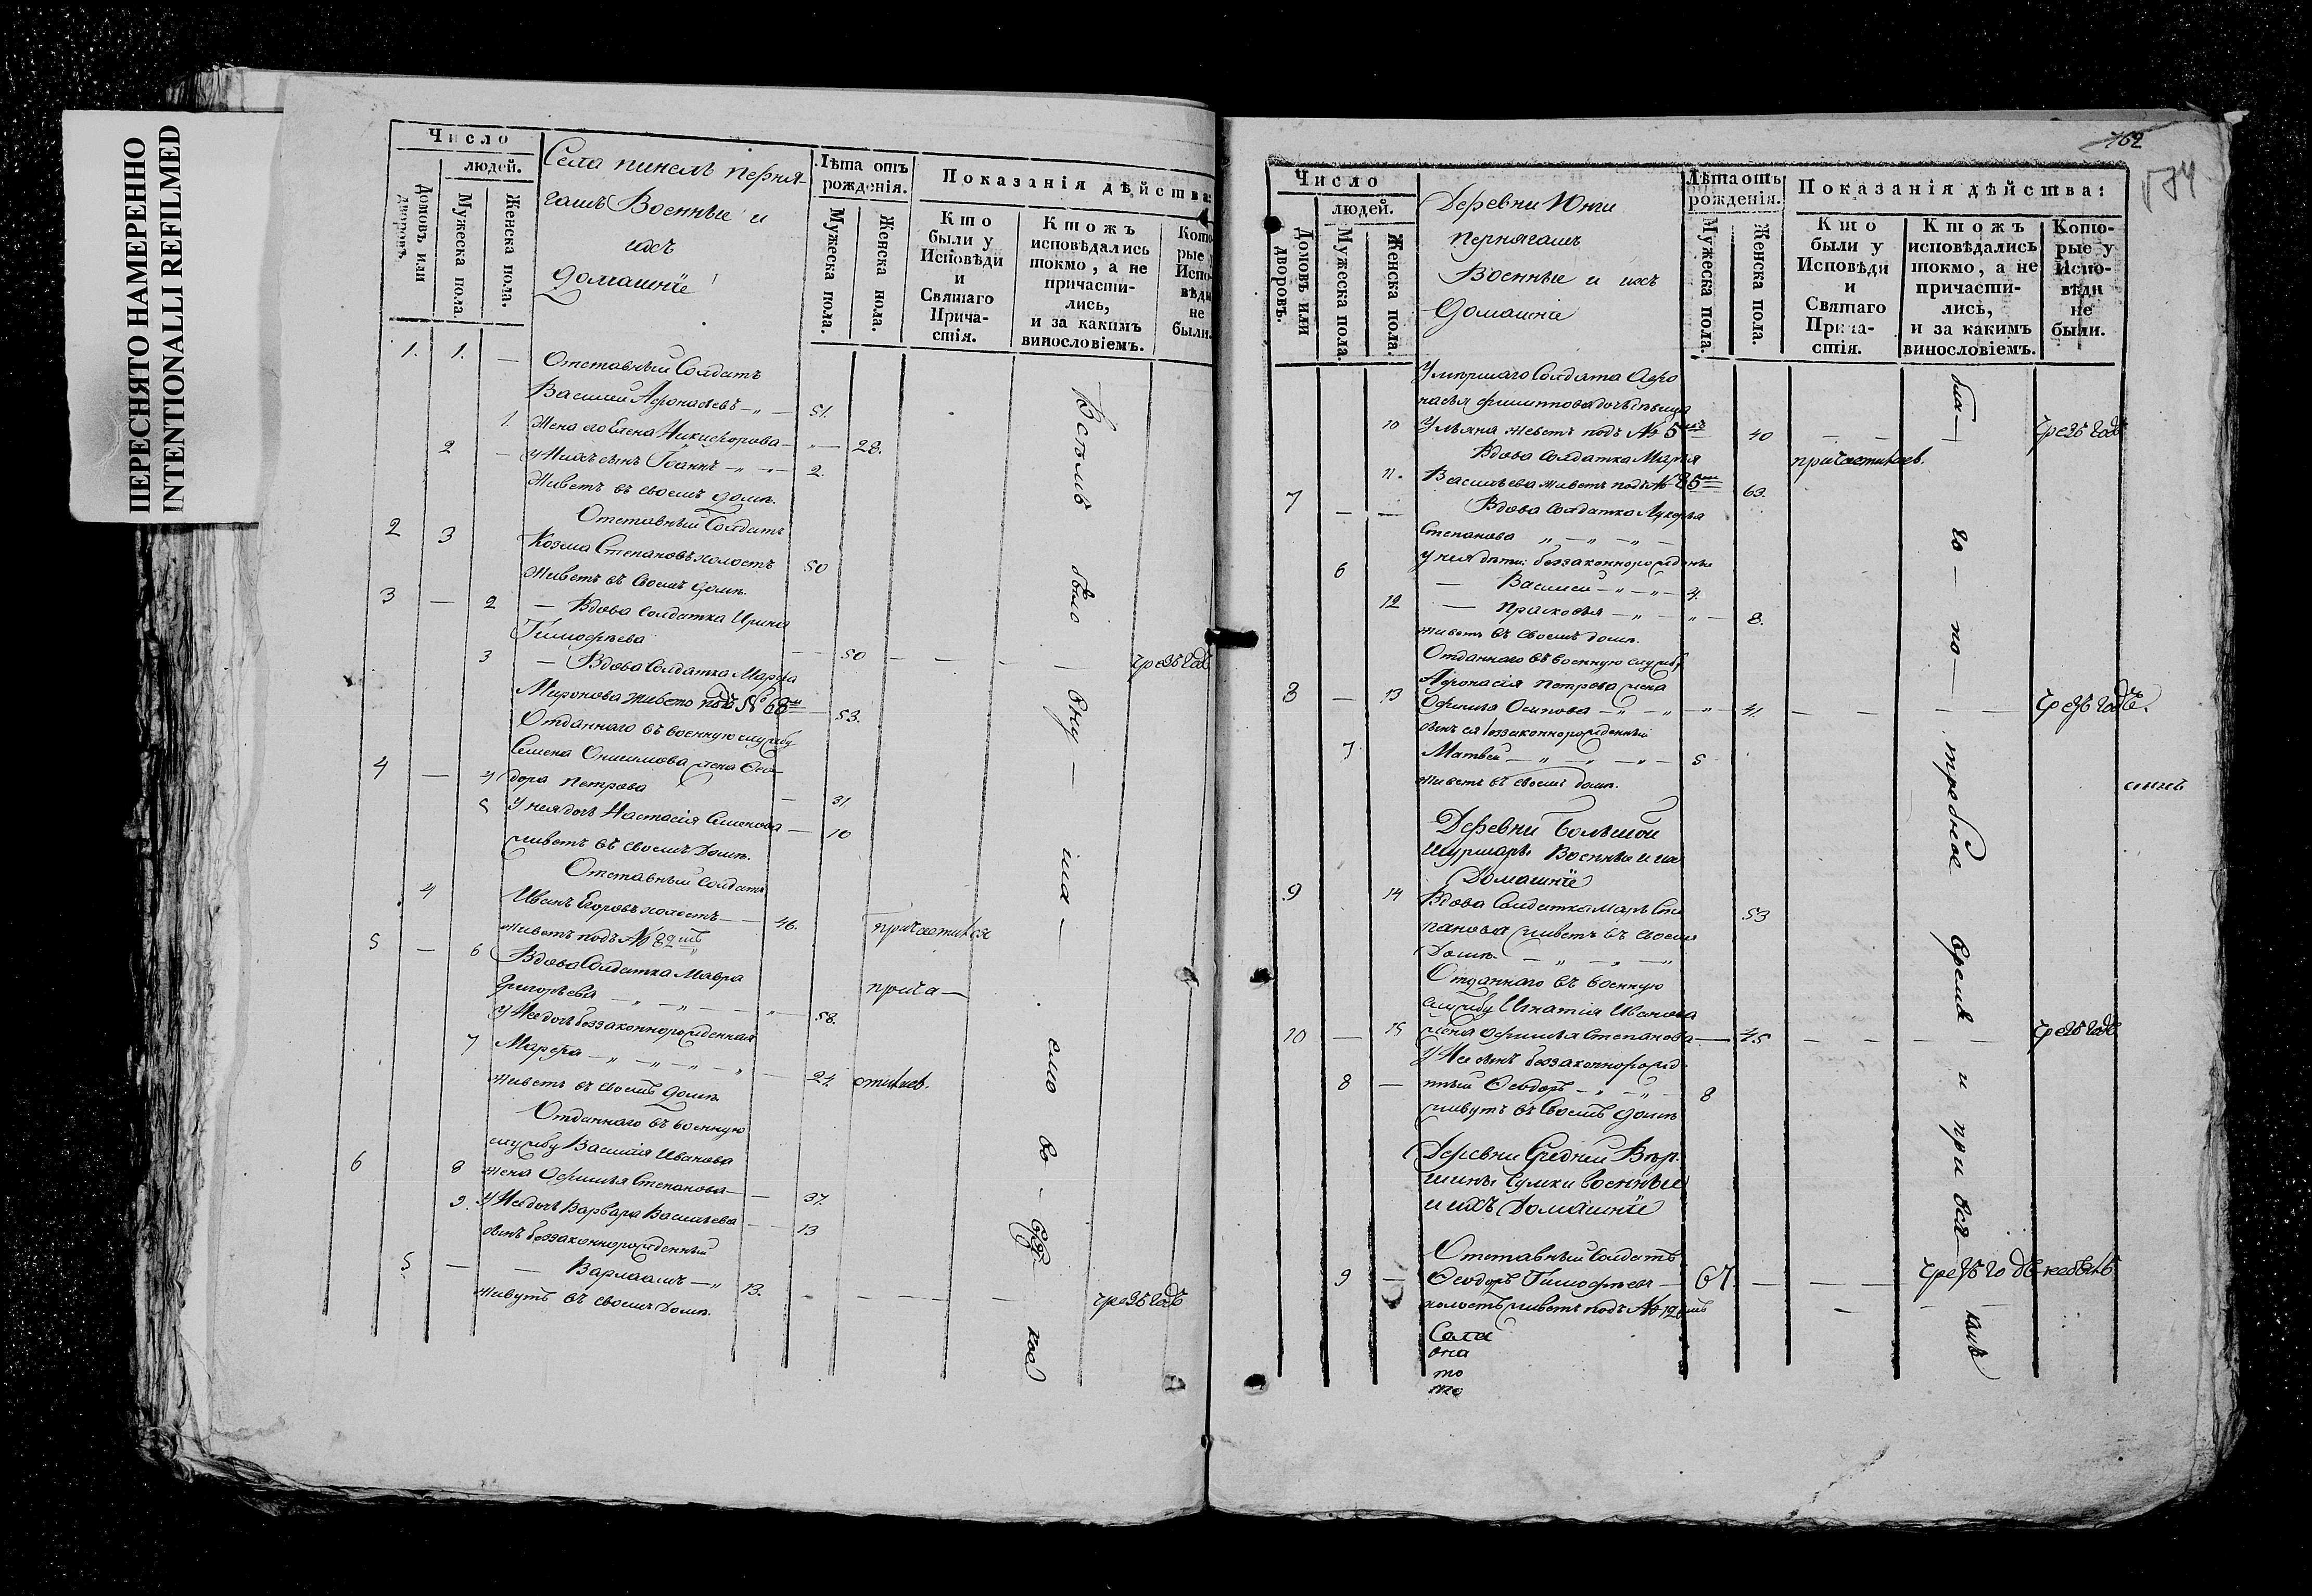 ПЕРЕСНЯТО НАМЕРЕННО
INTENTIONALLI REFILMED
Число
людей.
Домовъ или дворовъ.
Мужеска пола.
Женска пола.
Села пинель перня-
гашъ Военные и
ихъ
домашніе
Лѣта отъ рожденія.
Мужеска пола.
Женска пола.
Показанія дѣйства:
Кто были у Исповѣди и Святаго Прича-стія.
Ктожъ исповѣдались токмо, а не причасти-лись, и за какимъ винословіемъ.
Кото-рые у Испо-вѣди не были.
1. 1. — Отставный Солдатъ
Василей Афонасьевъ — „ — 51.
1. Жена его Елена Никифорова — „ — 28.
2 — у Нихъ сынъ Іоаннъ — „ — 2.
Живетъ въ своемъ домѣ.
Отставный Солдатъ
2 3 Козма Степановъ холостъ 50
Живетъ въ своемъ домѣ.
3 — 2 — Вдова солдатка Ирина
Тимофѣева — 50 — — — — чрезъ годъ
3 — Вдова Солдатка Марфа
Миронова живетъ подъ № 68мъ — 53.
Отданнаго въ военную службу
Семена Онисимова жена Ѳео-
4 — 4 дора Петрова — 31
5 У нея дочь Настасія Семенова — 10
живетъ въ своемъ домѣ.
Отставный солдатъ
4 Иванъ Егоровъ холостъ — 46. причастился
живетъ подъ № 82мъ
5 — 6 Вдова Солдатка Мавра
Григорьева — „ — „ — „ — 58. прича—
у Нее дочь беззаконнорожденная
7 Марфа — „ — „ — „ — 24. стилисъ.
живетъ въ своемъ домѣ
Отданнаго въ военную
службу Василія Иванова
6 8 жена Офимья Степанова — — 37.
9. у Нее дочь Варвара Васильева — 13
сынъ беззаконнорожденный
5. — — Варлаамъ — „ 13. — — — — чрезъ годъ
живутъ въ своемъ домѣ.
Всѣмъ было вну — ша — емо во — всѣ
162
174
Число
людей.
Домовъ или дворовъ.
Мужеска пола.
Женска пола.
Деревни Юнги
пернягашъ
Военные и ихъ
домашніе
Лѣта отъ рожденія.
Мужеска пола.
Женска пола.
Показанія дѣйства:
Кто были у Исповѣди и Святаго Прича-стія.
Ктожъ исповѣдались токмо, а не причасти-лись, и за какимъ винословіемъ.
Кото-рые у Испо-вѣди не были.
Умершаго Солдата Афо
насья филиппова дочь дѣвица
10 Ульяна живетъ подъ № 5мъ 40 — — чрезъ годъ
Вдова солдатка Марья причастилисъ.
11. Васильева живетъ подъ № 85мъ 63.
7 — — Вдова Солдатка Лукерья
Степанова „ — „ — „ —
у нея дѣти беззаконнорожденные
6 — Василей — „ — „ — 4.
12 — Прасковья — „ — „ — 8.
живетъ въ своемъ домѣ.
Отданнаго въ военную службу
Афонасія петрова жена
8 — 13 Офимья Осипова — „ — „ — 41. — — — — чрезъ годъ.
сынъ ея беззаконнорожденный
7 Матвей — „ — „ — „ — 5
живетъ въ своемъ домѣ.
Деревни Большой
шурмары Военные и ихъ
Домашніе
9 14 Вдова Солдатка Марья Сте
панова живетъ въ своемъ 53
Домѣ. — „ — „ — „
Отданнаго въ военную
службу Игнатія Иванова
10 — 15 жена Офимья Степанова — 45 — — — — чрезъ годъ
у Нее сынъ беззаконнорожд
8 — нный Ѳеодоръ — „ — „ — 8
живутъ въ своемъ домѣ
Деревни Средней Вер.
шины сумки военные
и ихъ Домашніе
Отставный солдатъ
9 — Ѳеодоръ Тимофѣевъ — 67. — — — чрезъ годъ
холостъ живетъ подъ № 12мъ
Села
она
то
же
во — по — требное время и при